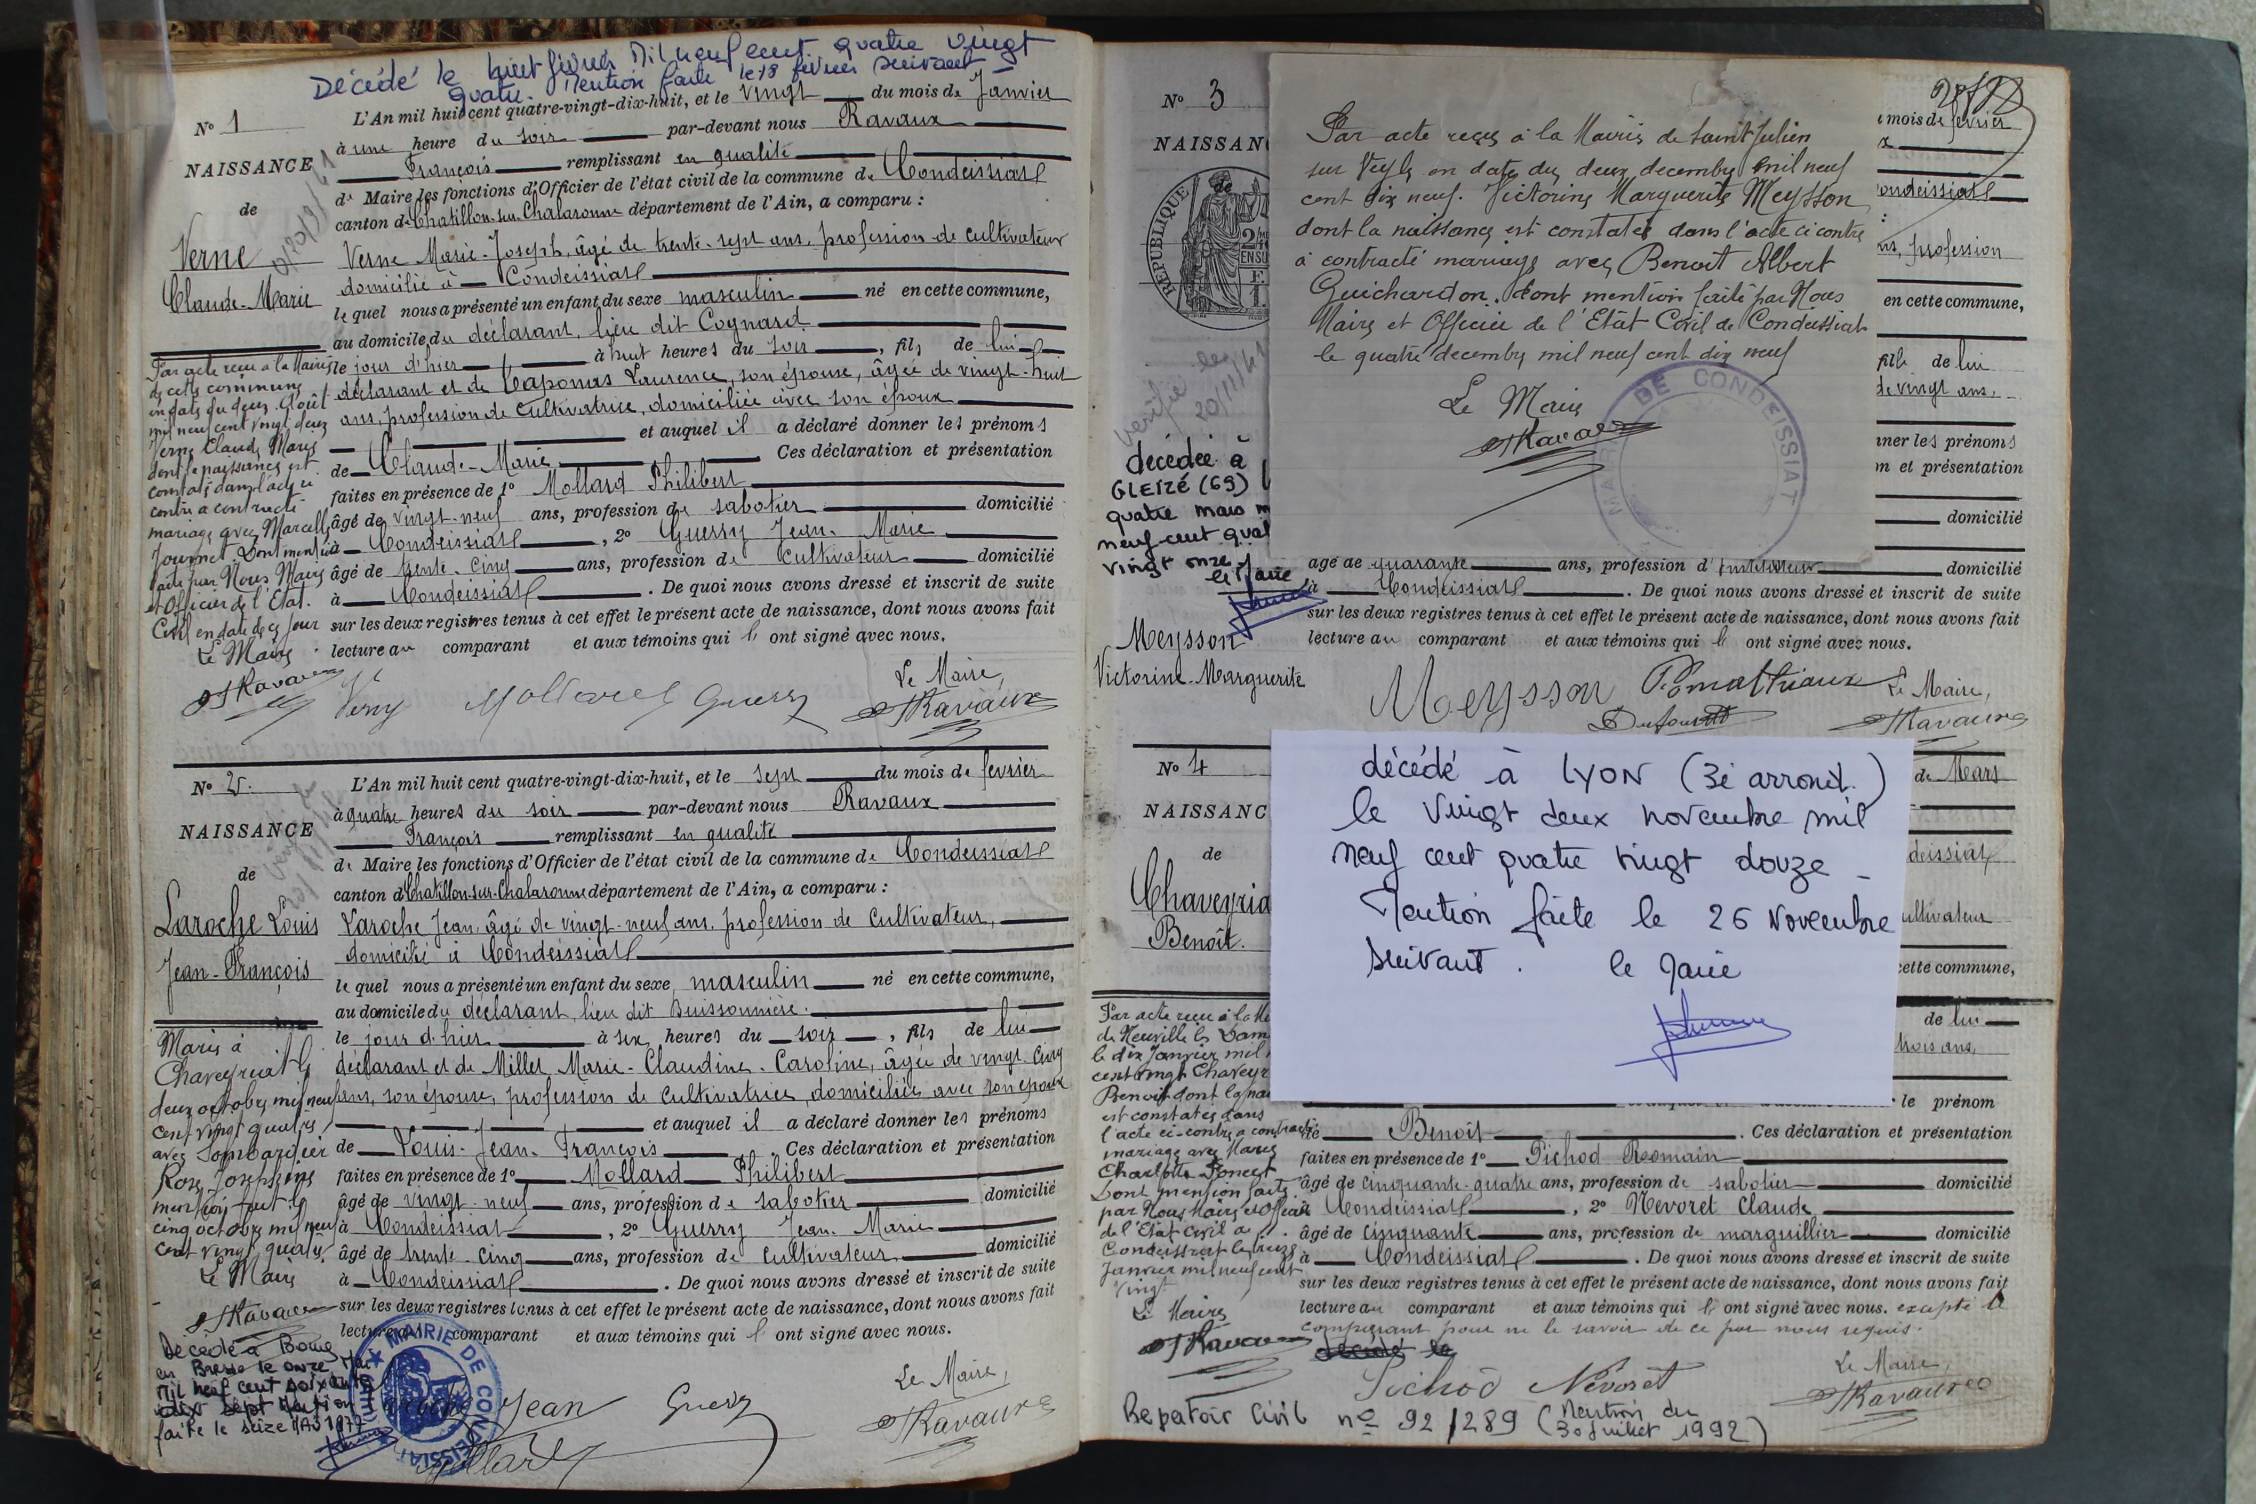 Décédé le huit février Mil neuf cent quatre vingt
quatre. Mention faite le 18 février suivant
N° 1
NAISSANCE
de
Verne
Claude-Marie
L'An mil huit cent quatre-vingt-dix-huit, et le vingt du mois de Janvier
à une heure du soir par-devant nous Ravaux
François remplissant en qualité
de Maire les fonctions d'Officier de l'état civil de la commune de Condeissiat
canton de Chatillon-sur-Chalaronne département de l'Ain, a comparu :
Verne Marie-Joseph, âgé de trente-sept ans, profession de cultivateur
domicilié à Condeissiat
lequel nous a présenté un enfant du sexe masculin né en cette commune,
au domicile du déclarant, lieu dit Cognard
le jour d'hier à huit heures du soir, fils de lui
déclarant et de Caponas Laurence, son épouse, âgée de vingt-huit
ans, profession de cultivatrice, domiciliée avec son époux
et auquel il a déclaré donner les prénoms
de Claude-Marie Ces déclaration et présentation
faites en présence de 1° Mollard Philibert
âgé de vingt-neuf ans, profession de sabotier domicilié
à Condeissiat, 2° Guerry Jean-Marie
âgé de trente-cinq ans, profession de cultivateur domicilié
à Condeissiat. De quoi nous avons dressé et inscrit de suite
sur les deux registres tenus à cet effet le présent acte de naissance, dont nous avons fait
lecture au comparant et aux témoins qui l ont signé avec nous.
Par acte reçu à la Mairie
de cette commune
en date du deux Août
mil neuf cent vingt deux
Verne Claude Marie
dont la naissance est
constatée dans l'acte ci
contre a contracté
mariage avec Marcelle
Journet Dont mention
faite par Nous Maire
et Officier de l'Etat.
Civil en date de ce jour
Le Maire
Ravaux
Verne Mollard Guerry
Le Maire,
Ravaux
N° 2.
NAISSANCE
de
Laroche Louis
Jean-François
L'An mil huit cent quatre-vingt-dix-huit, et le sept du mois de février
à quatre heures du soir par-devant nous Ravaux
François remplissant en qualité
de Maire les fonctions d'Officier de l'état civil de la commune de Condeissiat
canton de Chatillon-sur-Chalaronne département de l'Ain, a comparu :
Laroche Jean, âgé de vingt-neuf ans, profession de cultivateur,
domicilié à Condeissiat
lequel nous a présenté un enfant du sexe masculin né en cette commune,
au domicile du déclarant, lieu dit Buissonnière.
le jour d'hier à six heures du soir, fils de lui
déclarant et de Millet Marie-Claudine-Caroline, âgée de vingt-cinq
ans, son épouse, profession de cultivatrice, domiciliée avec son époux
et auquel il a déclaré donner les prénoms
de Louis-Jean-François. Ces déclaration et présentation
faites en présence de 1° Mollard Philibert
âgé de vingt-neuf ans, profession de sabotier domicilié
à Condeissiat, 2° Guerry Jean-Marie
âgé de trente-cinq ans, profession de cultivateur domicilié
à Condeissiat. De quoi nous avons dressé et inscrit de suite
sur les deux registres tenus à cet effet le présent acte de naissance, dont nous avons fait
lecture au comparant et aux témoins qui l ont signé avec nous.
Marié à
Chaveyriat le
deux octobre mil neuf
cent vingt quatre
avec Lombardier
Rose Josephine
mention fait le
cinq octobre mil neuf
cent vingt quatre
Le Maire
Ravaux
Décédé à Bourg
en Bresse le onze Mai
Mil neuf cent soixante
dix sept Mention
faite le seize Mai 1977
MAIRIE DE CONDEISSIAT
Jean Guerry
Mollard
Le Maire,
Ravaux
N° 3
NAISSAN
RÉPUBLIQUE
décédée à
GLEIZÉ (69)
quatre mars m
neuf cent quat
vingt onze
le Maire
Meysson
Victorine-Marguerite
Par acte reçu à la Mairie de Saint Julien
sur Veyle en date du deux decembre mil neuf
cent dix neuf. Victorine Marguerite Meysson
dont la naissance est constatée dans l'acte ci contre
a contracté mariage avec Benoit Albert
Guichardon. dont mention faite par Nous
Maire et Officier de l'Etat Civil de Condeissiat
le quatre decembre mil neuf cent dix neuf
Le Maire
Ravaux
DE CONDEISSIAT
mois de février
ondeissiat
ns, profession
en cette commune,
fille de lui
de vingt ans,
nner les prénoms
n et présentation
domicilié
âgé de quarante ans, profession d'instituteur domicilié
à Condeissiat. De quoi nous avons dressé et inscrit de suite
sur les deux registres tenus à cet effet le présent acte de naissance, dont nous avons fait
lecture au comparant et aux témoins qui l ont signé avec nous.
Meysson
Dufour
Le Maire,
Ravaux
N° 4
NAISSANC
de
Chaveyria
Benoît.
décédé à LYON (3è arrondt.)
le vingt deux novembre mil
neuf cent quatre vingt douze _
Mention faite le 26 Novembre
suivant. le Maire
de Mars
deissiat
ultivateur
cette commune,
de lui
trois ans,
le prénom
de Benoît. Ces déclaration et présentation
faites en présence de 1° Pichod Romain
âgé de cinquante-quatre ans, profession de sabotier domicilié
à Condeissiat, 2° Nevoret Claude
âgé de cinquante ans, profession de marguillier domicilié
à Condeissiat. De quoi nous avons dressé et inscrit de suite
sur les deux registres tenus à cet effet le présent acte de naissance, dont nous avons fait
lecture au comparant et aux témoins qui l ont signé avec nous. excepté le
comparant pour ne le savoir de ce par nous requis.
Par acte reçu à la M
de Neuville les Dam
le dix Janvier mil n
cent vingt Chaveyr
Benoit dont la nai
est constatée dans
l'acte ci-contre a contracté
mariage avec Marie
Charlotte Poncet
Dont mention faite
par Nous Maire et Officier
de l'Etat Civil a
Condeissiat le treize
Janvier mil neuf cent
vingt
Le Maire
Ravaux
décédé le
Pichod Nevoret
Le Maire,
Ravaux
Repertoir Civil n° 92/289 (Mention du
30 Juillet 1992)